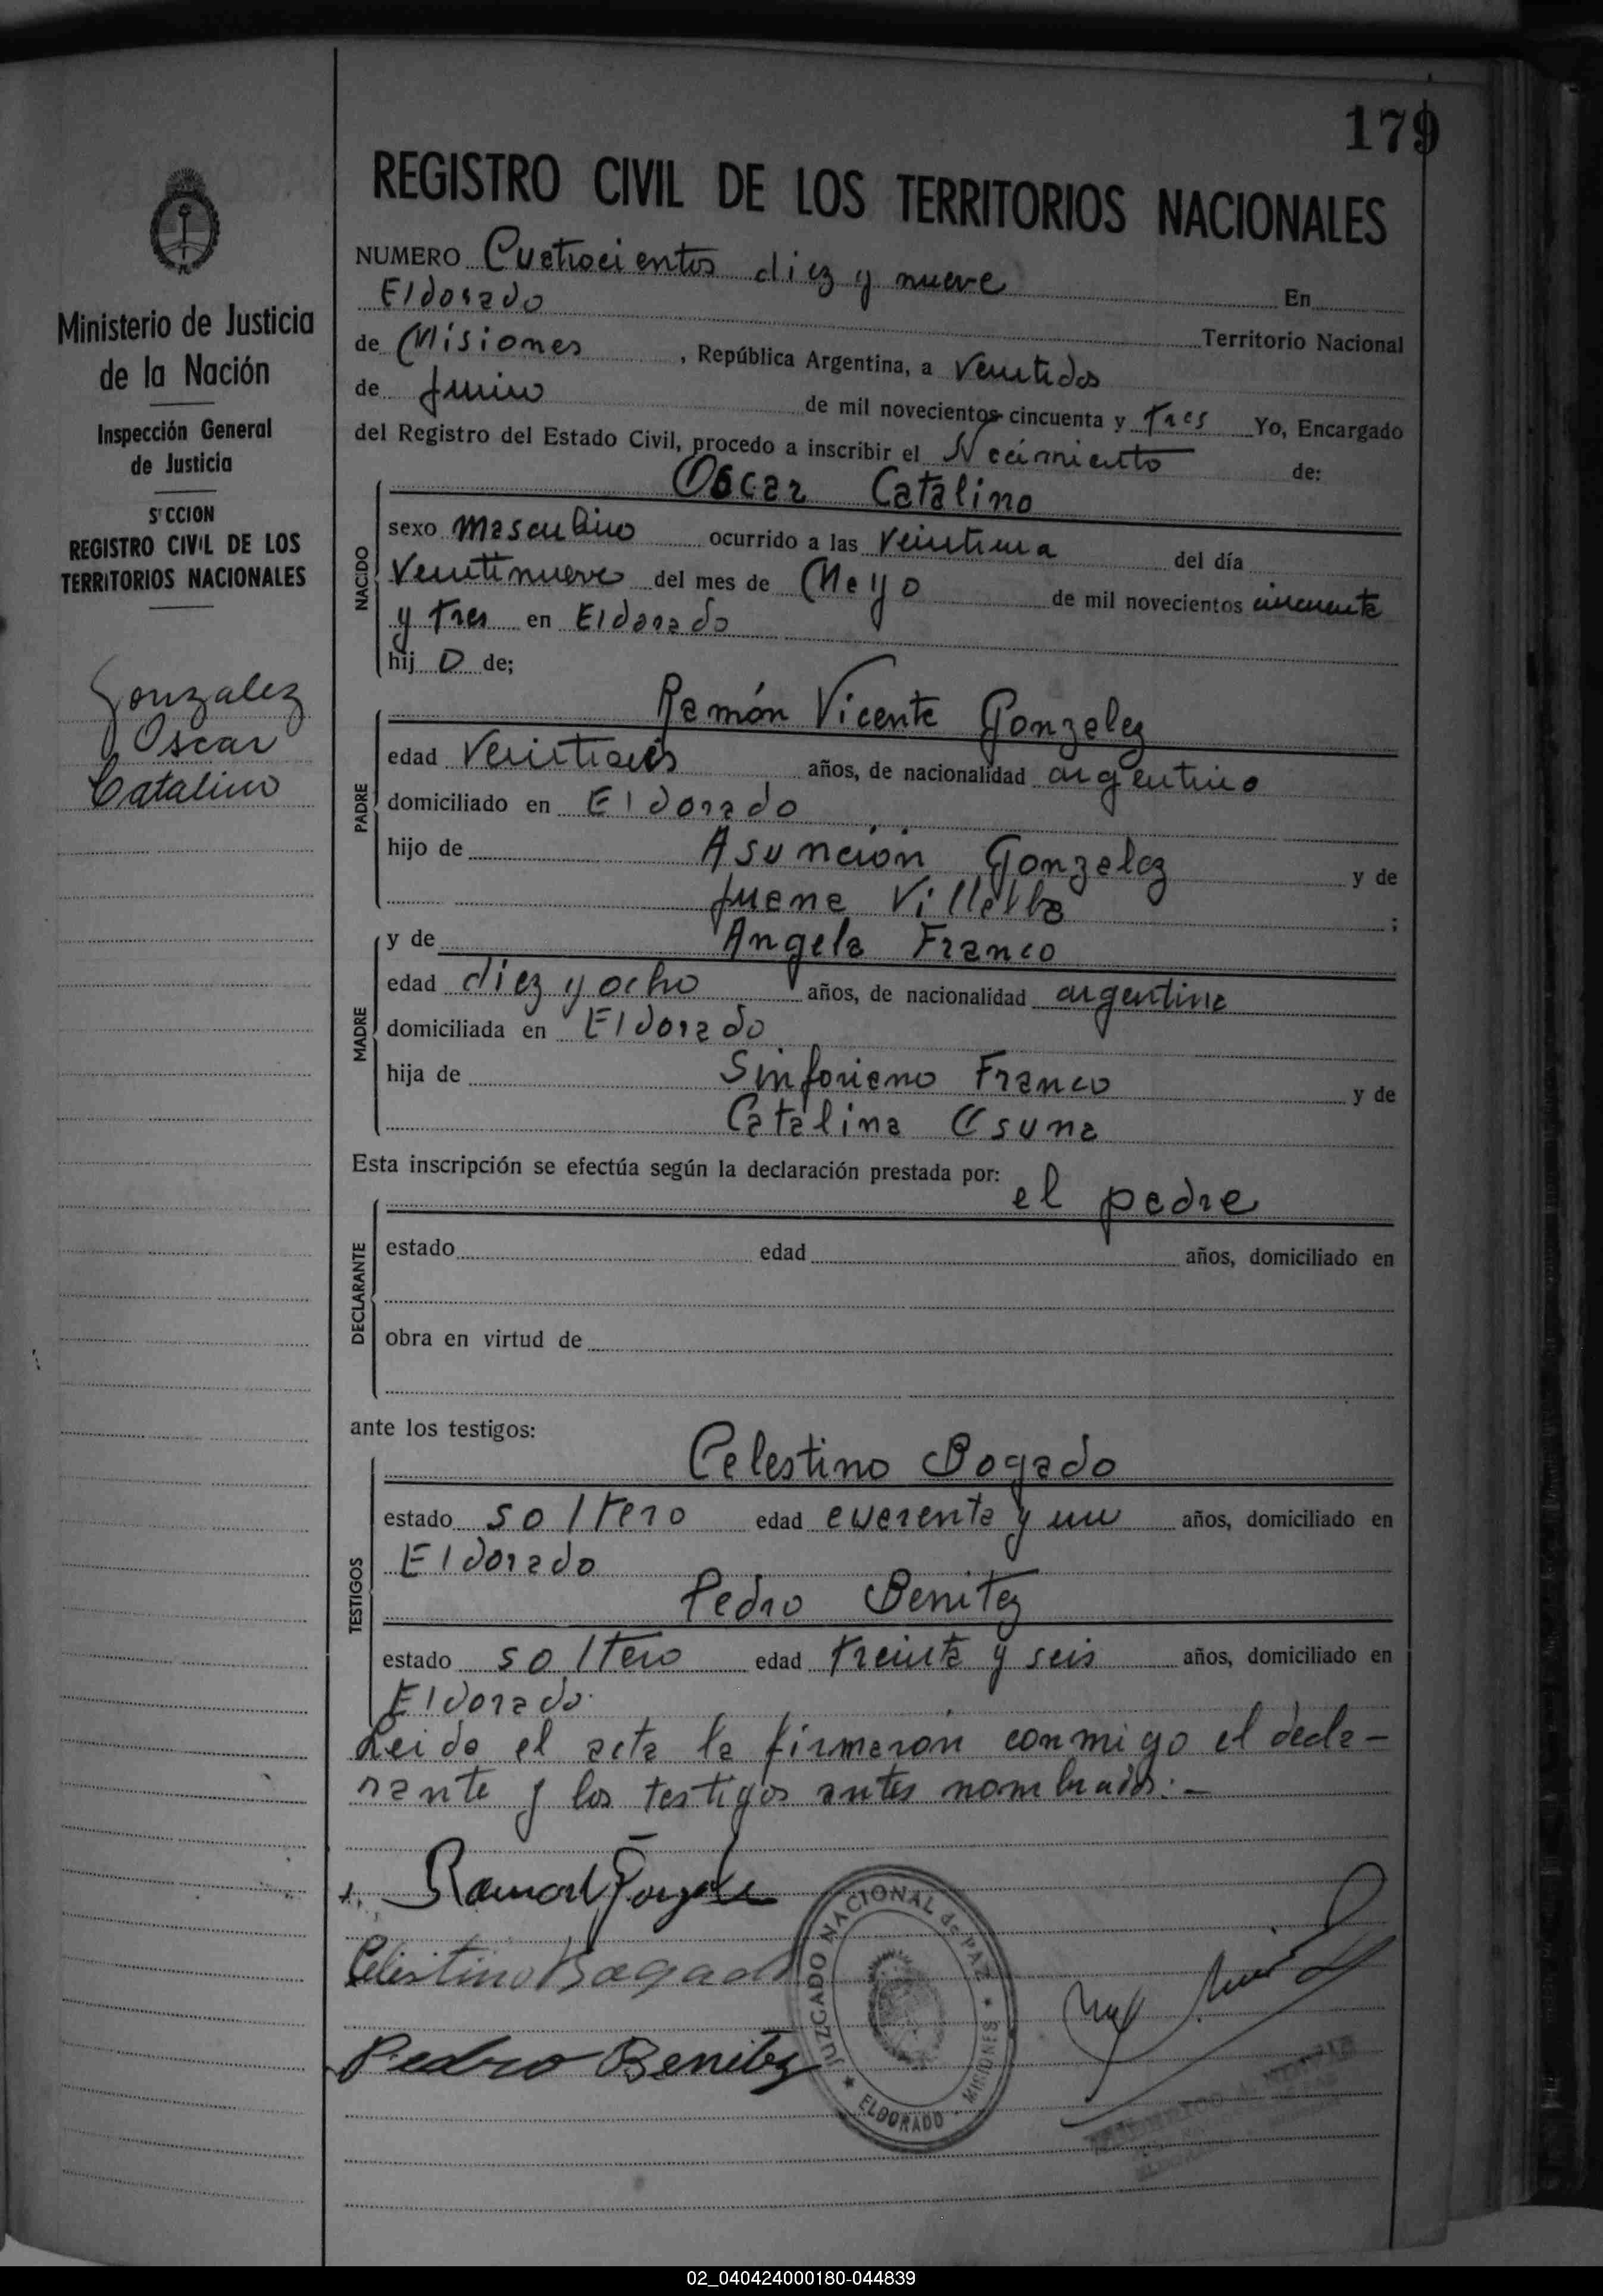 179
REGISTRO CIVIL DE LOS TERRITORIOS NACIONALES
NUMERO Cuatrocientos diez y nueve
Eldorado En
Territorio Nacional
de Misiones, República Argentina, a Veintidos
de Junio de mil novecientos cincuenta y Tres Yo, Encargado
del Registro del Estado Civil, procedo a inscribir el Nacimiento de:
Oscar Catalino
NACIDO
sexo Masculino ocurrido a las Veintiuna del día
Veintinueve del mes de Mayo de mil novecientos cincuenta
y Tres en Eldorado
hij o de;
Ramón Vicente Gonzalez
PADRE
edad años, de nacionalidad argentino
domiciliado en Eldorado
hijo de Asunción Gonzalez y de
Juana Villalba ;
MADRE
y de Angela Franco
edad diez y ocho años, de nacionalidad argentina
domiciliada en Eldorado
hija de Sinforiano Franco y de
Catalina Osuna
Esta inscripción se efectúa según la declaración prestada por:
el padre
DECLARANTE
estado edad años, domiciliado en
obra en virtud de
ante los testigos:
Celestino Bogado
TESTIGOS
estado soltero edad cuarenta y un años, domiciliado en
Eldorado
Pedro Benitez
estado soltero edad treinta y seis años, domiciliado en
Eldorado.
Leida el acta la firmaron conmigo el decla-
rante y los testigos antes nombrados:-
Ramon Gonzalez
Celestino Bogado
Pedro Benitez
JUZGADO NACIONAL de PAZ
ELDORADO - MISIONES
Ministerio de Justicia
de la Nación
Inspección General
de Justicia
S'CCION
REGISTRO CIVIL DE LOS
TERRITORIOS NACIONALES
Gonzalez
Oscar
Catalino
02_040424000180-044839